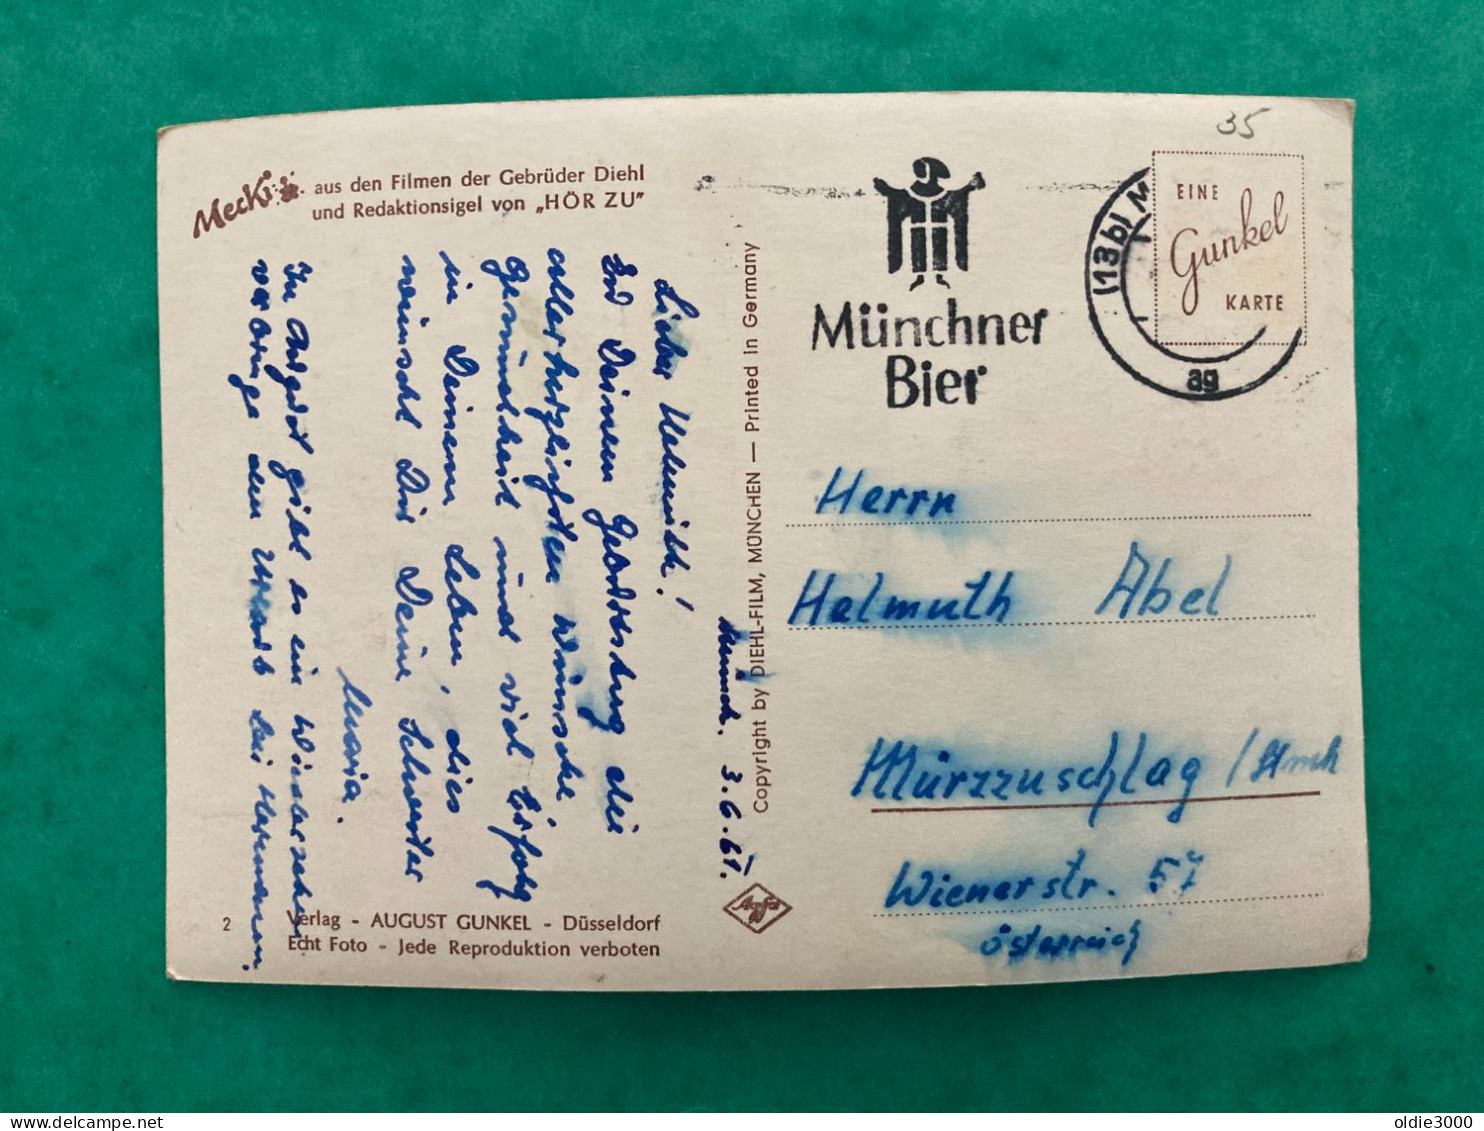 35
Mecki aus den Filmen der Gebrüder Diehl
und Redaktionsigel von „HÖR ZU"
Lieber Helmuth!
Zu Deinem Geburtstag die
allerherzlichsten Wünsche
Gesundheit und viel Erfolg
in Deinem Leben, dies
wünscht Dir Deine Schwester
Maria.
In August gibt es ein Wiedersehen
verbringe den Urlaub bei Hermann.
Münch. 3.6.61.
2
Verlag - AUGUST GUNKEL - Düsseldorf
Echt Foto - Jede Reproduktion verboten
Copyright by DIEHL-FILM, MÜNCHEN — Printed in Germany
Agfa
Münchner
Bier
(13b) M
ag
EINE
Gunkel
KARTE
Herrn
Helmuth Abel
Mürzzuschlag / Stmk
Wienerstr. 57
Österreich
oldie3000